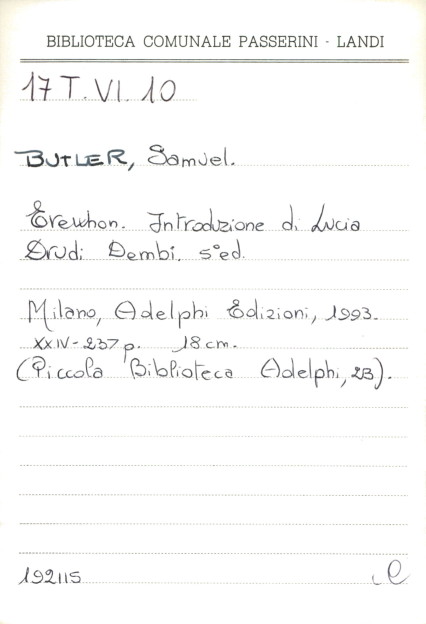 BIBLIOTECA COMUNALE PASSERINI - LANDI
17 T. VI. 10
BUTLER, Samuel.
Erewhon. Introduzione di Lucia
Drudi Dembi. 5ª ed.
Milano, Adelphi Edizioni, 1993.
XXIV-237 p. 18 cm.
(Piccola Biblioteca Adelphi, 23).
192115